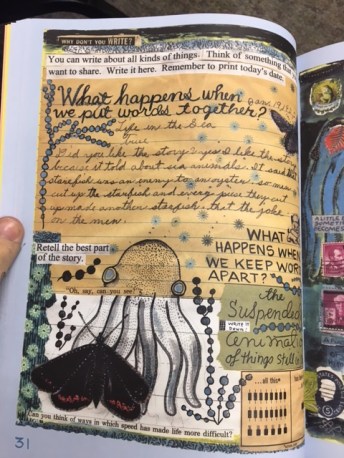 WHY DON'T YOU WRITE?
You can write about all kinds of things. Think of something
want to share. Write it here. Remember to print today's date.
What happens when
we put words together?
Life in the Sea
Did you like the story? yes I like the story
because it told about sea animals. It said that
starfish was an enemy to an oyster, so men
cut up the starfish and every piece they cut
up made another starfish, that the joke
on the men.
Retell the best part
of the story.
"Oh, say, can you see
WHAT
HAPPENS WHEN
WE KEEP WOR
APART?
the
Suspended
WRITE IT
DOWN!
animati
of things still
all this
Can you think of ways in which speed has made life more difficult?
31